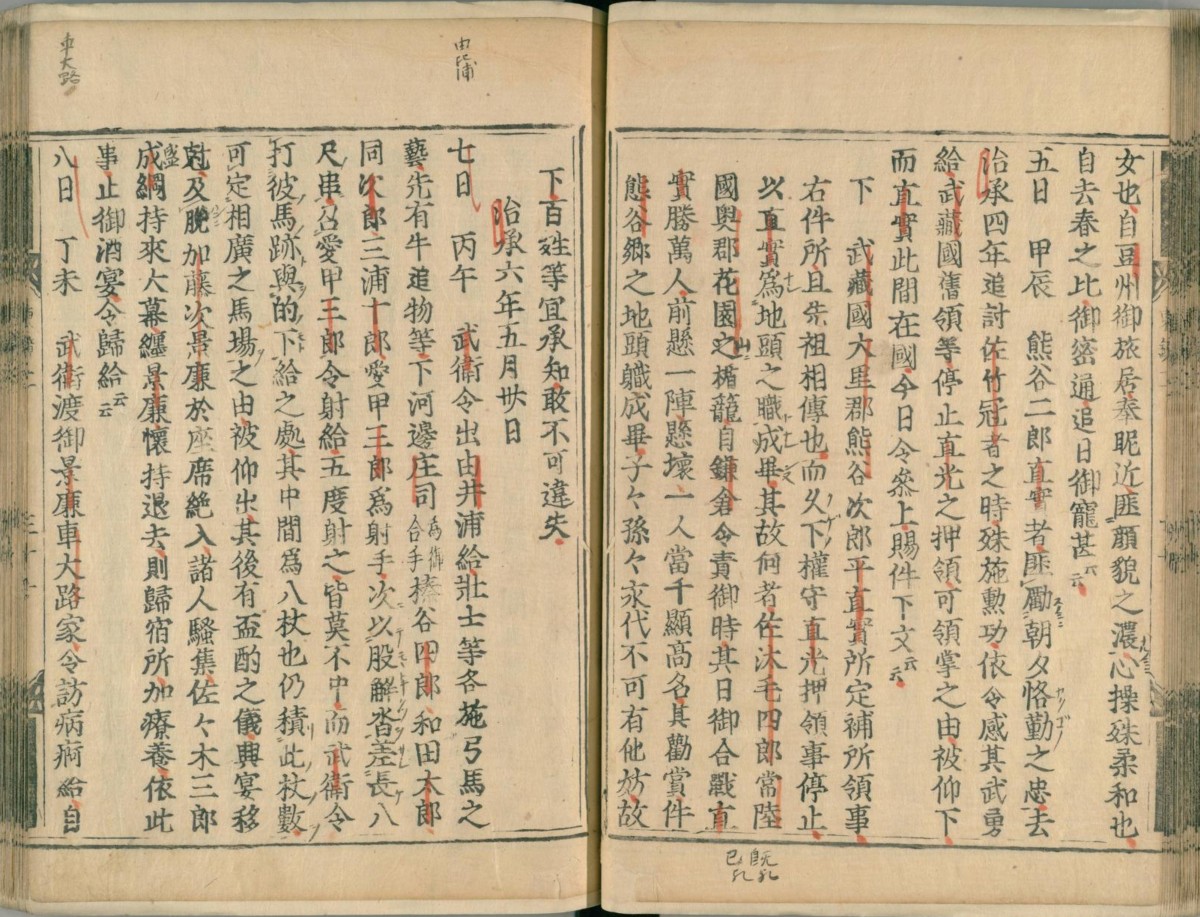 女也、自豆州御旅居奉昵近、匪顔貌之濃、心操殊柔和也、
自去春之比御密通、追日御寵甚云云
五日　甲辰　熊谷二郎直實者、匪勵朝夕恪勤之忠、去
治承四年追討佐竹冠者之時、殊施勲功、依令感其武勇
給、武藏國舊領等、停止直光之押領、可領掌之由被仰下、
而直實此間在國、今日令參上賜件下文云云
下　武藏國大里郡熊谷次郎平直實所定補所領事、
右件所、且先祖相傳也、而久下權守直光押領事停止、
以直實爲地頭之職成畢、其故何者、佐汰毛四郎常陸
國奥郡花園之楯籠、自鎌倉令責御時、其日御合戰、直
實勝萬人前懸、一陣懸壞、一人當千顯高名、其勸賞件
熊谷郷之地頭軄成畢、子々孫々永代不可有他妨、故
下、百姓等宜承知、敢不可違失、
治承六年五月卅日
七日　丙午　武衛令出由井浦給、壯士等各施弓馬之
藝、先有牛追物等、下河邊庄司爲御合手榛谷四郎、和田太郎、
同次郎、三浦十郎、愛甲三郎爲射手、次以股解沓差長八
尺串、召愛甲三郎令射給、五度射之、皆莫不中、而武衛令
打彼馬跡與的下給之處、其中間爲八杖也、仍積此杖數、
可定相廣之馬場之由、被仰出、其後有盃酌之儀、興宴移
剋、及晩加藤次景廉於座席絶入、諸人騷集、佐々木三郎
盛
成綱持來大幕、纏景廉懷持退去、則歸宿所加療養、依此
事、止御酒宴令歸給云云
八日　丁未　武衛渡御景廉車大路家、令訪病痾給、自
由比浦
車大路